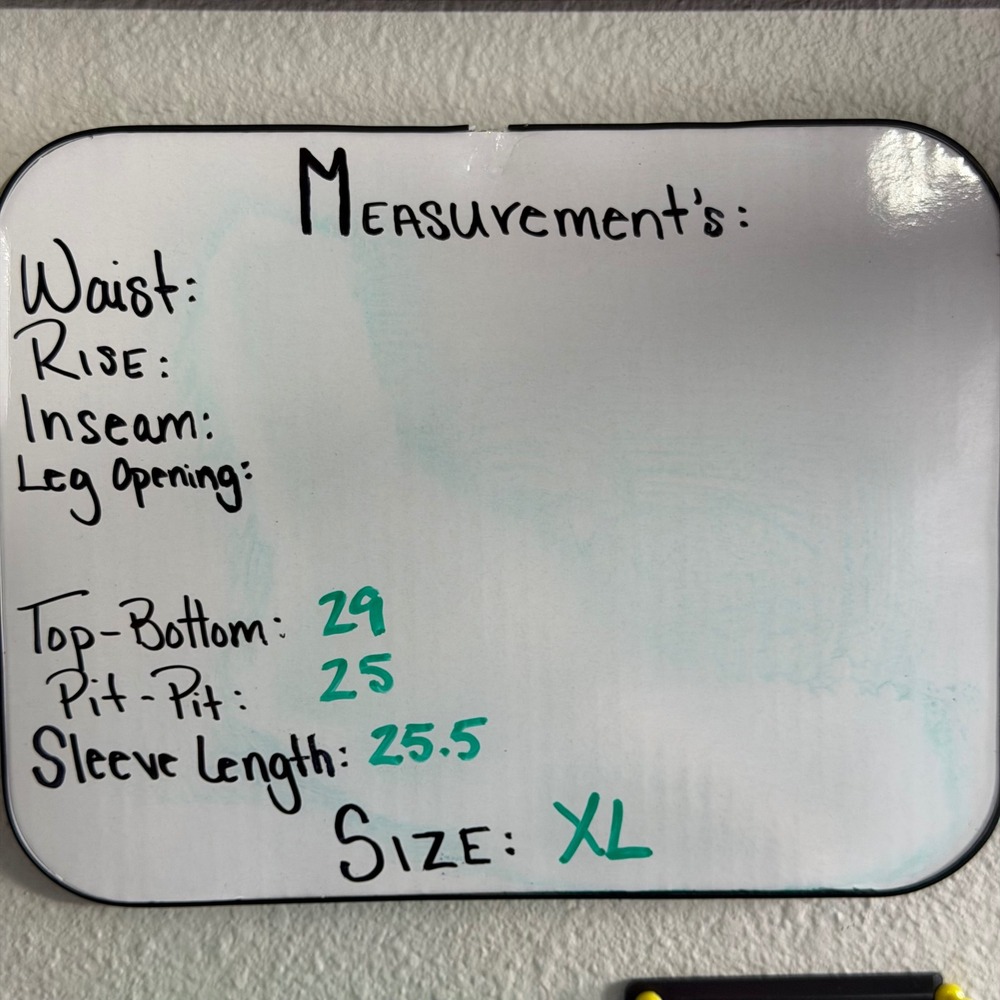 MEASurement's:
Waist:
RISE:
Inseam:
Leg Opening:
Top-Bottom: 29
Pit-Pit: 25
Sleeve Length: 25.5
SIZE: XL